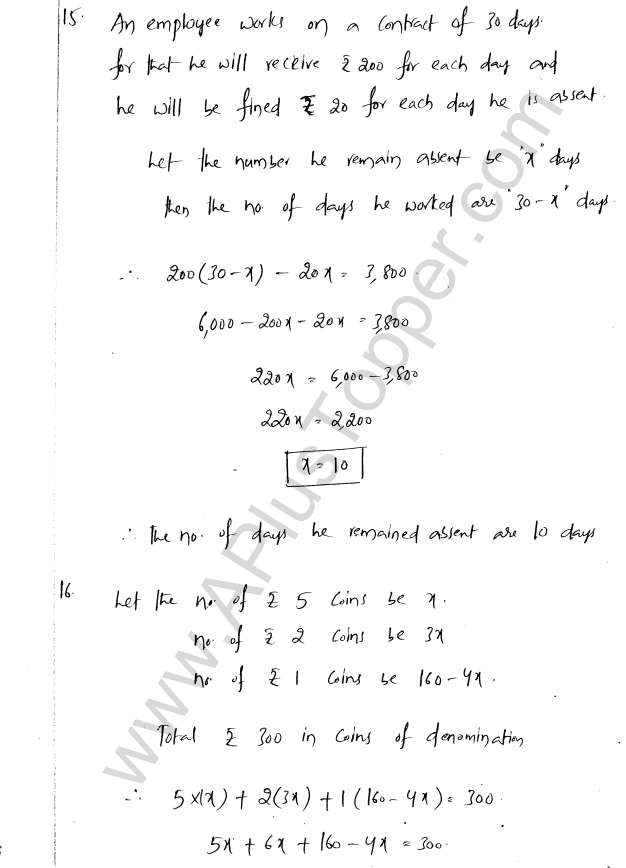 15. An employee works on a contract of 30 days.
for that he will receive ₹ 200 for each day and
he will be fined ₹ 20 for each day he is absent.
Let the number he remain absent be "x" days
then the no. of days he worked are "30-x" days.
∴ 200(30-x) - 20x = 3,800.
6,000 - 200x - 20x = 3,800
220x = 6,000 - 3,800
220x = 2,200
x = 10
∴ The no. of days he remained absent are 10 days
16. Let the no. of ₹ 5 coins be x.
no. of ₹ 2 coins be 3x
no. of ₹ 1 coins be 160-4x.
Total ₹ 300 in coins of denomination
∴ 5×(x) + 2(3x) + 1(160-4x) = 300.
5x + 6x + 160 - 4x = 300.
www.APlusTopper.com